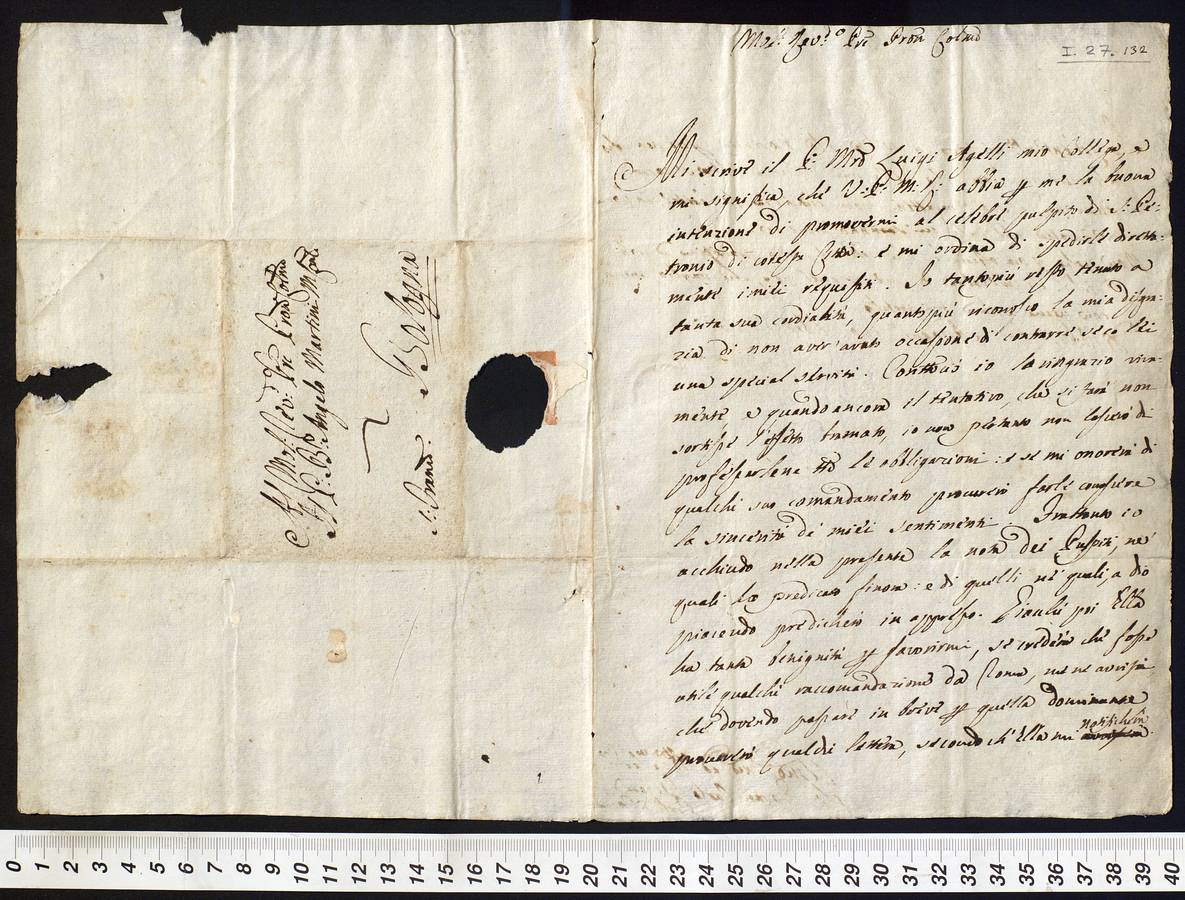 Mol: Rev:do Pre Pron Colmo
I. 27. 132
Mi scrive il P: Mro Luigi Agelli mio Collega, e
mi significa, che V: P: M: R: abbia per me la buona
intenzione di promovermi al celebre pulpito di S: Pe-
tronio di cotesta Città: e mi ordina di spedirle diretta-
mente i miei requisiti. Io tantopiù resto tenuto a
tanta sua cordialità, quantopiù riconosco la mia disgra-
zia di non aver avuto occasione di contrarre seco lei
una special servitù. Contuttociò io la ringrazio viva-
mente, e quando ancora il tentativo che si farà non
sortisse l'effetto bramato, io non pertanto non lascerò di
professarlene tte le obbligazioni: e se mi onorerà di
qualche suo comandamento procurerò farle conoscere
la sincerità de' miei sentimenti. Frattanto io
acchiudo nella presente la nota dei Pulpiti, ne'
quali ho predicato finora: e di quelli ne' quali, a Dio
piacendo predicherò in appresso. Giacchè poi Ella
ha tanta benignità per favorirmi, se crederà che fosse
utile qualche raccomandazione da Roma, me ne avvisi
che dovendo passare in breve per quella dominante
procurerò qualche lettera, secondo ch'Ella mi notificherà
Al Mol: Rev: Pre Pron Colmo
Il P: Gio: B: Angelo Martini M: Conle
S: Franco: Bologna
0 1 2 3 4 5 6 7 8 9 10 11 12 13 14 15 16 17 18 19 20 21 22 23 24 25 26 27 28 29 30 31 32 33 34 35 36 37 38 39 40